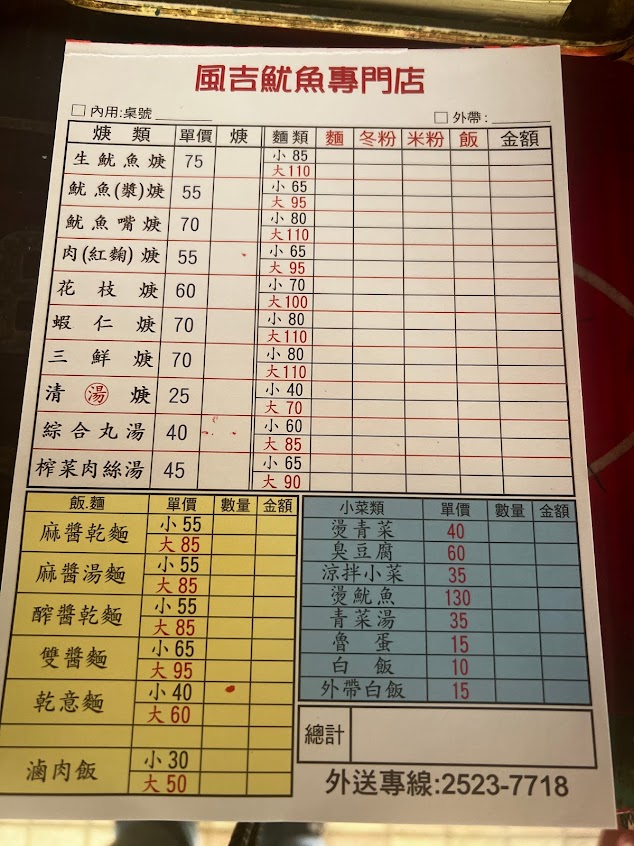 風吉魷魚專門店
內用:桌號
外帶:
焿類 單價 焿 麵類 麵 冬粉 米粉 飯 金額
生魷魚焿 75 小 85
大 110
魷魚(漿)焿 55 小 65
大 95
魷魚嘴焿 70 小 80
大 110
肉(紅麴)焿 55 小 65
大 95
花枝焿 60 小 70
大 100
蝦仁焿 70 小 80
大 110
三鮮焿 70 小 80
大 110
清湯焿 25 小 40
大 70
綜合丸湯 40 小 60
大 85
榨菜肉絲湯 45 小 65
大 90
飯.麵 單價 數量 金額
麻醬乾麵 小 55
大 85
麻醬湯麵 小 55
大 85
醡醬乾麵 小 55
大 85
雙醬麵 小 65
大 95
乾意麵 小 40
大 60
滷肉飯 小 30
大 50
小菜類 單價 數量 金額
燙青菜 40
臭豆腐 60
涼拌小菜 35
燙魷魚 130
青菜湯 35
魯蛋 15
白飯 10
外帶白飯 15
總計
外送專線:2523-7718